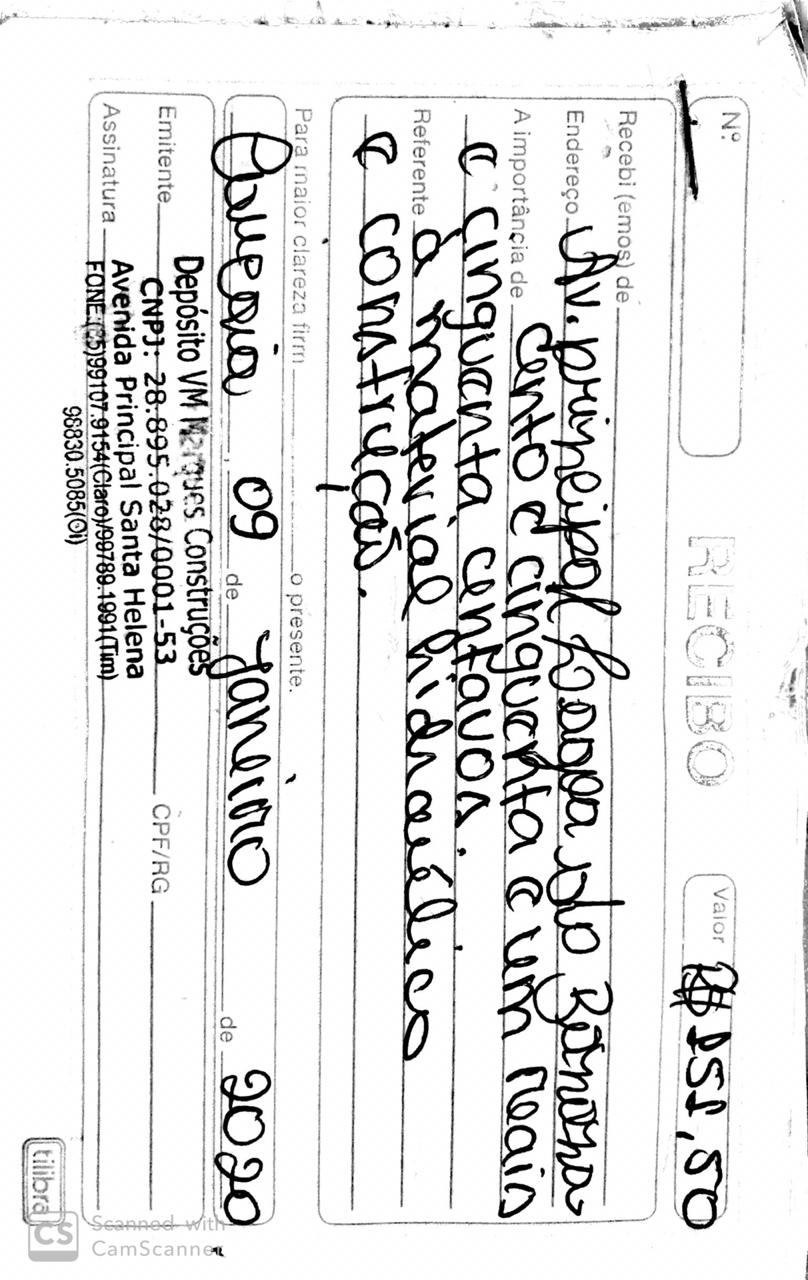 Nº
RECIBO
Valor R$ 151,50
Recebi (emos) de
Endereço Av. principal Lagoa do Banana
A importância de cento e cinquenta e um reais
e cinquenta centavos.
Referente a material hidraúlico
e construção.
Para maior clareza firm o presente.
09 de Janeiro de 2020
Depósito VM Marques Construções
Emitente CNPJ: 28.895.028/0001-53 CPF/RG
Assinatura Avenida Principal Santa Helena
FONE:(85)99107.9154(Claro)/99789.1991(Tim)
98830.5085(Oi)
tilibra
CS Scanned with
CamScanner